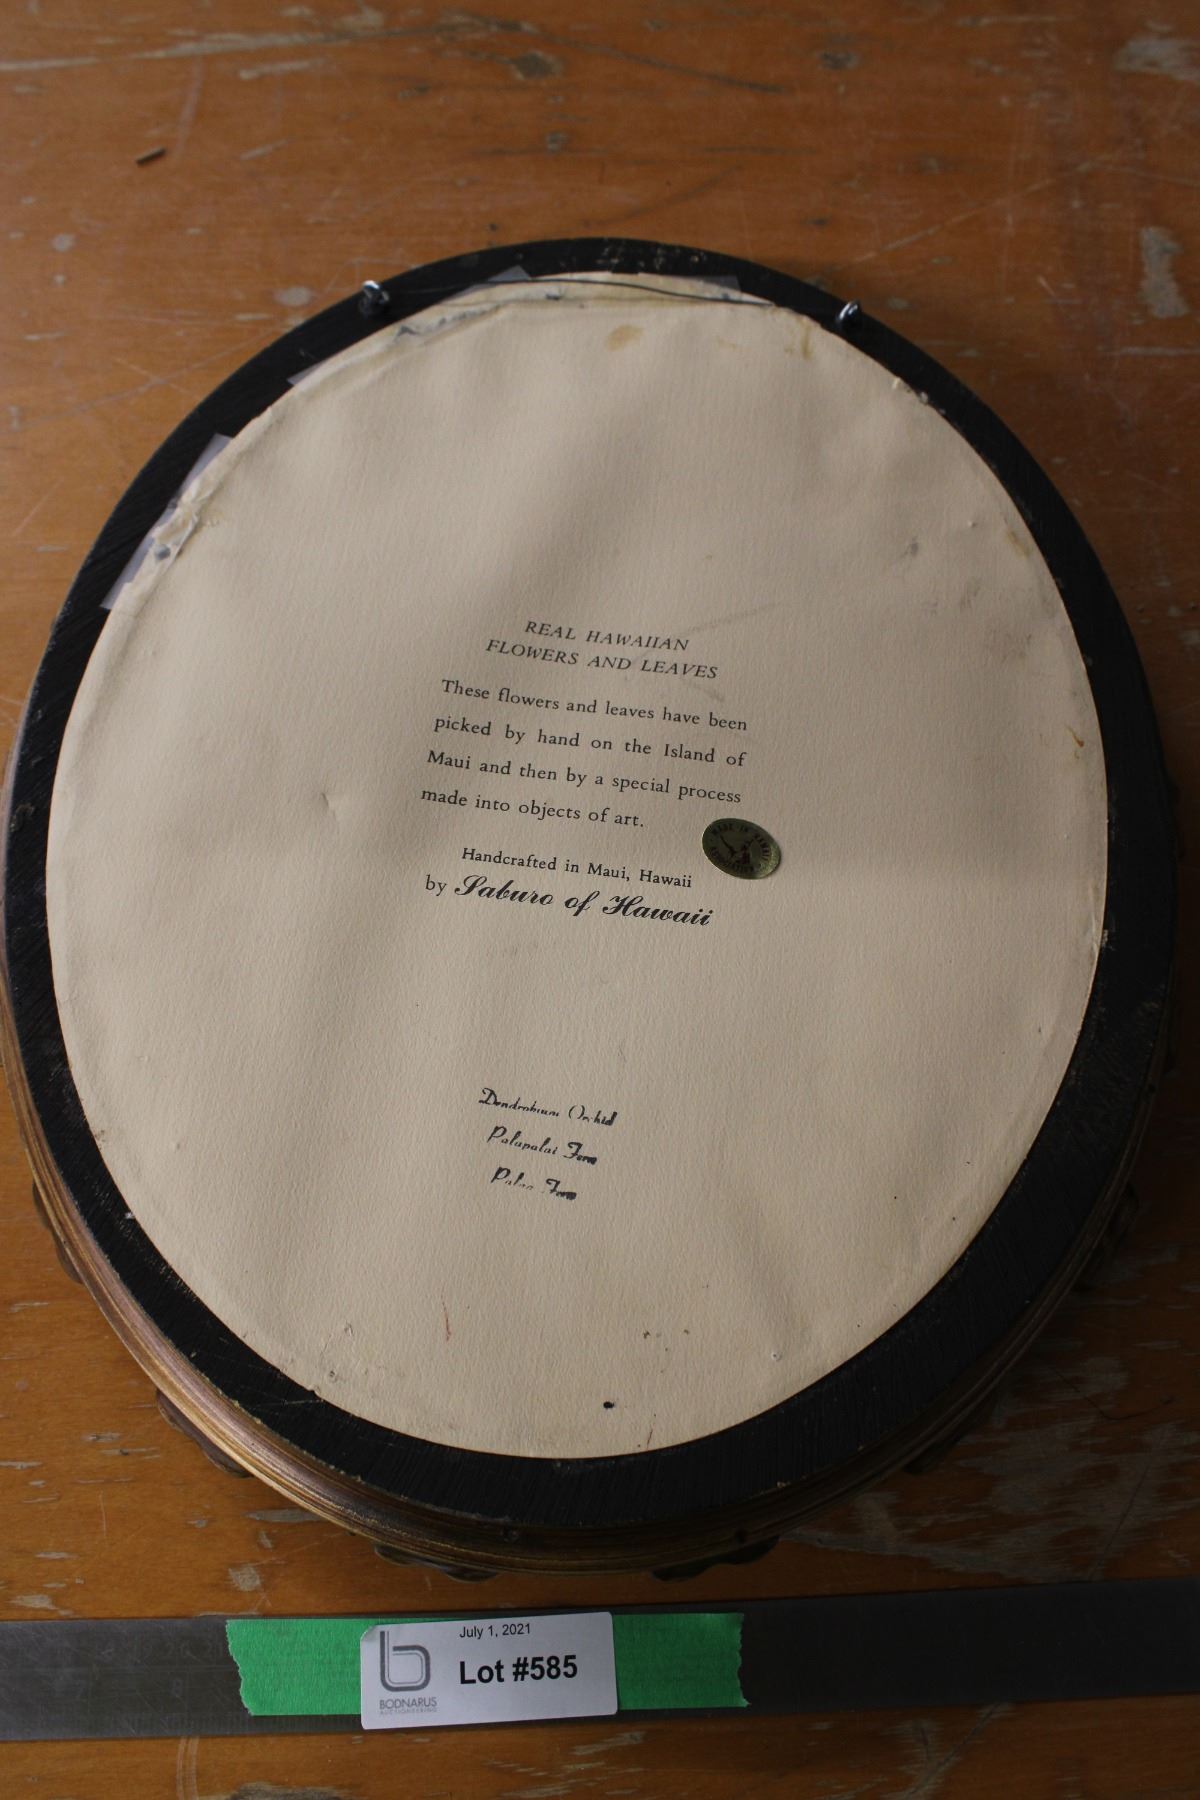 REAL HAWAIIAN
FLOWERS AND LEAVES
These flowers and leaves have been
picked by hand on the Island of
Maui and then by a special process
made into objects of art.
MADE IN HAWAII
ASSOCIATION
Handcrafted in Maui, Hawaii
by Saburo of Hawaii
Dendrobium Orchid
Palapalai Fern
Palaa Fern
July 1, 2021
Lot #585
BODNARUS
AUCTIONEERING